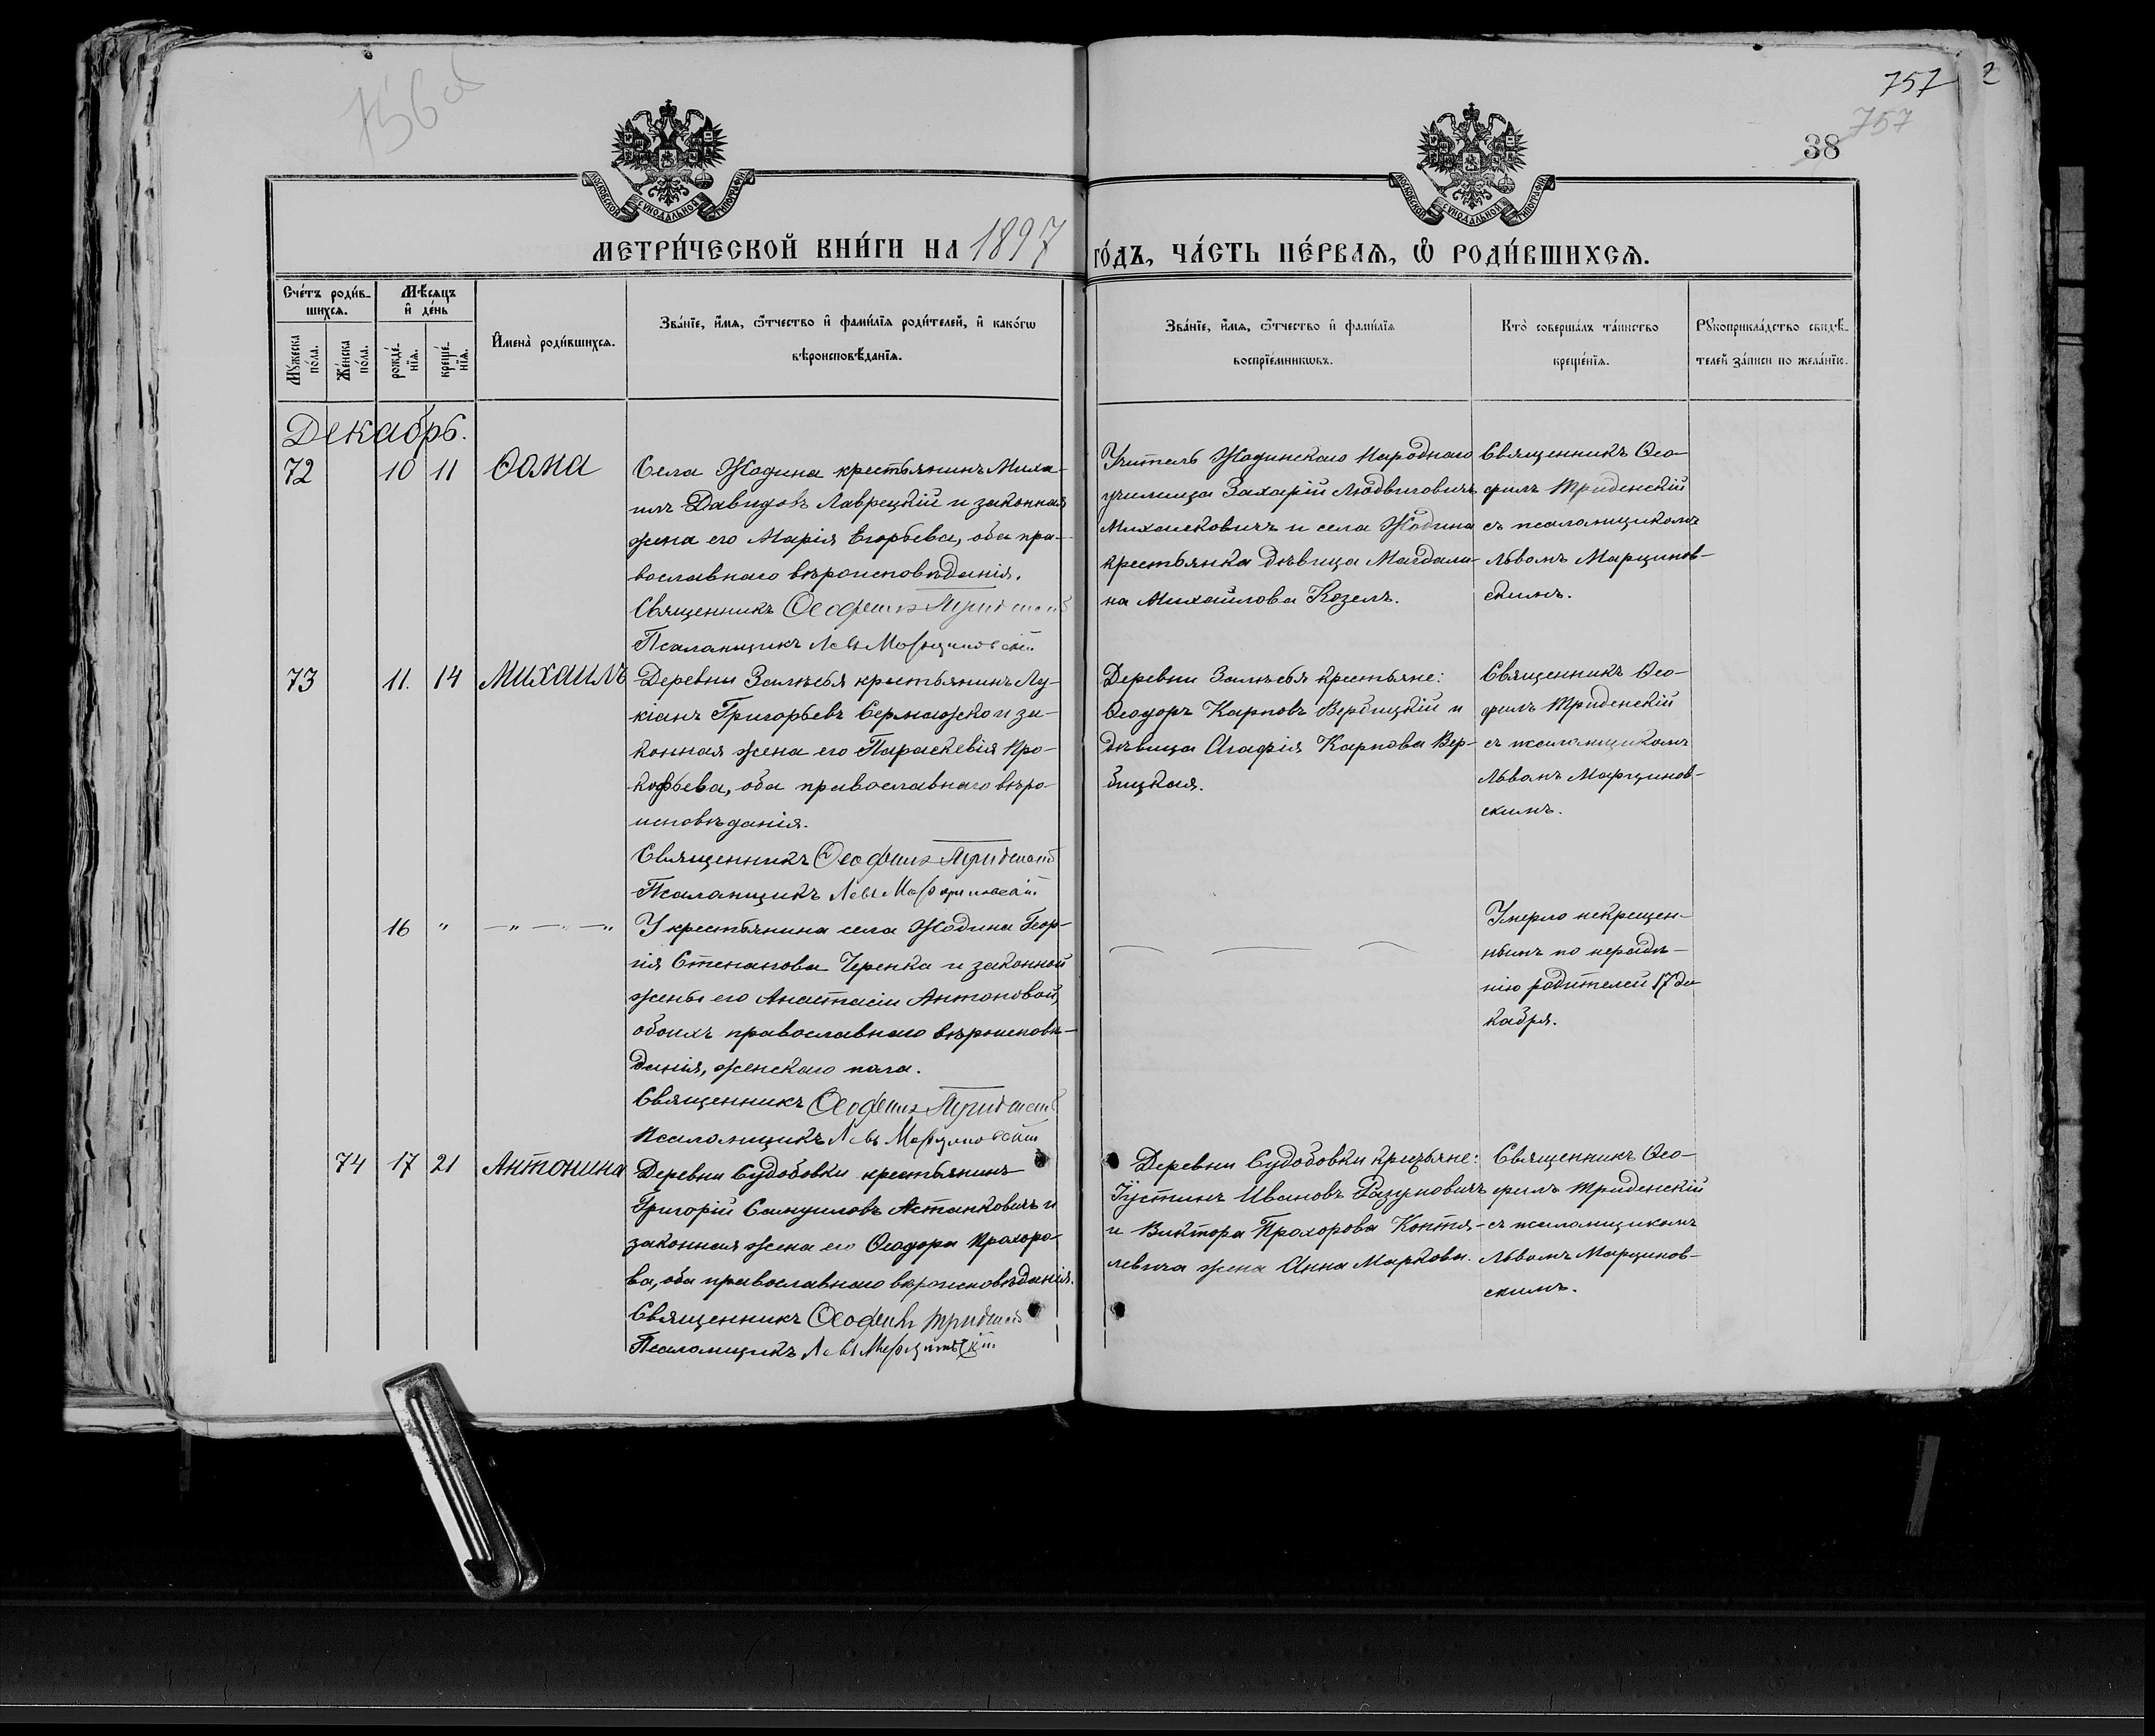 756 об
757
2
757
38
МОСКОВСКОЙ СѴНОДАЛЬНОЙ ТИПОГРАФІИ
МОСКОВСКОЙ СѴНОДАЛЬНОЙ ТИПОГРАФІИ
МЕТРИ́ЧЕСКОЙ КНИ́ГИ НА 1897
ГО́ДЪ, ЧА́СТЬ ПЕ́РВАѦ, Ѡ҆ РОДИ́ВШИХСѦ.
Счéтъ роди́в-
шихсѧ.
Мꙋ́жеска
по́ла.
Же́нска
по́ла.
Мѣ́сѧцъ
и҆ де́нь
рождé-
нїѧ.
крещé-
нїѧ.
И҆мена̀ роди́вшихсѧ.
Зва́нїе, и҆́мѧ, ѻ҆́тчество и҆ фами́лїѧ роди́телей, и҆ како́гѡ
вѣроисповѣ́данїѧ.
Зва́нїе, и҆́мѧ, ѻ҆́тчество и҆ фами́лїѧ
воспрїе́мникѡвъ.
Кто̀ соверша́лъ та́инство
креще́нїѧ.
Рꙋкоприкла́дство свидѣ́-
телей за́писи по жела́нїю.
Декабрь.
72
10
11
Ѳома
Села Жодина крестьянинъ Миха-
илъ Давидовъ Лаврецкій и законная
жена его Марія Егорьева, оба пра-
вославнаго вѣроисповѣданія.
Священникъ Ѳеофилъ Триденскій
Псаломщикъ Левъ Марциновскій
Учитель Жодинскаго Народнаго
училища Захарій Людвиговичъ
Михалковичъ и села Жодина
крестьянка дѣвица Магдали-
на Михайлова Козелъ.
Священникъ Ѳео-
филъ Триденскій
съ псаломщикомъ
Львомъ Марцинов-
скимъ.
73
11.
14
Михаилъ
Деревни Залѣсья крестьянинъ Лу-
кіанъ Григорьевъ Сермяжко и за-
конная жена его Параскевія Про-
кофьева, оба православнаго вѣро-
исповѣданія.
Священникъ Ѳеофилъ Триденскій
Псаломщикъ Левъ Марциновскій
Деревни Залѣсья крестьяне:
Ѳеодоръ Карповъ Вербицкій и
дѣвица Агафія Карпова Вер-
бицкая.
Священникъ Ѳео-
филъ Триденскій
съ псаломщикомъ
Львомъ Марцинов-
скимъ.
16
"
— " — " — "
У крестьянина села Жодина Геор-
гія Степанова Черепка и законной
жены его Анастасіи Антоновой,
обоихъ православнаго вѣроисповѣ-
данія, женскаго пола.
Священникъ Ѳеофилъ Триденскій
Псаломщикъ Левъ Марциновскій
Умерло некрещен-
нымъ по нерадѣ-
нію родителей 17 де
кабря.
74
17
21
Антонина
Деревни Судобовки крестьянинъ
Григорій Самуиловъ Астанковичъ и
законная жена его Ѳеодора Прохоро-
ва, оба православнаго вѣроисповѣданія.
Священникъ Ѳеофилъ Триденскій
Псаломщикъ Левъ Марциновскій
Деревни Судобовки крестьяне:
Іустинъ Ивановъ Разумовичъ
и Виктора Прохорова Контя-
левича жена Анна Маркова.
Священникъ Ѳео-
филъ Триденскій
съ псаломщикомъ
Львомъ Марцинов-
скимъ.